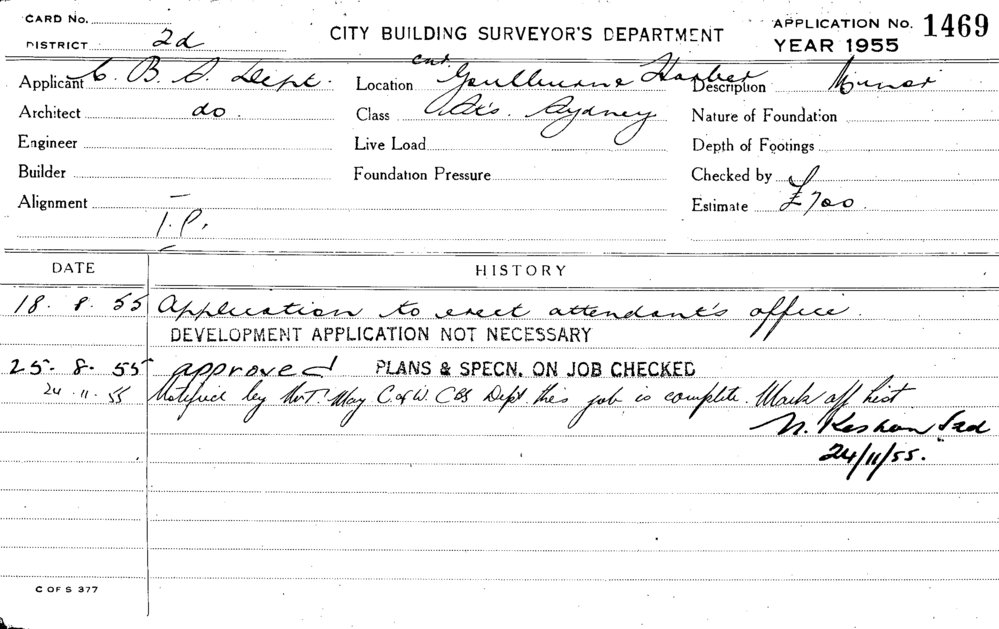 CARD No.
DISTRICT 2d
CITY BUILDING SURVEYOR'S DEPARTMENT
APPLICATION No. 1469
YEAR 1955
Applicant C. B. S. Dept. Location cnr. Goulburne Harber Description Minor
Architect do. Class St's. Sydney Nature of Foundation
Engineer Live Load Depth of Footings
Builder Foundation Pressure Checked by
Alignment Estimate £700
T.P.
DATE HISTORY
18. 8. 55 Application to erect attendant's office.
DEVELOPMENT APPLICATION NOT NECESSARY
25. 8. 55 approved PLANS & SPECN. ON JOB CHECKED
24. 11. 55 Notified by Mr T. May C of W. CBS Dept this job is complete. Mark off list
24/11/55.
C OF S 377